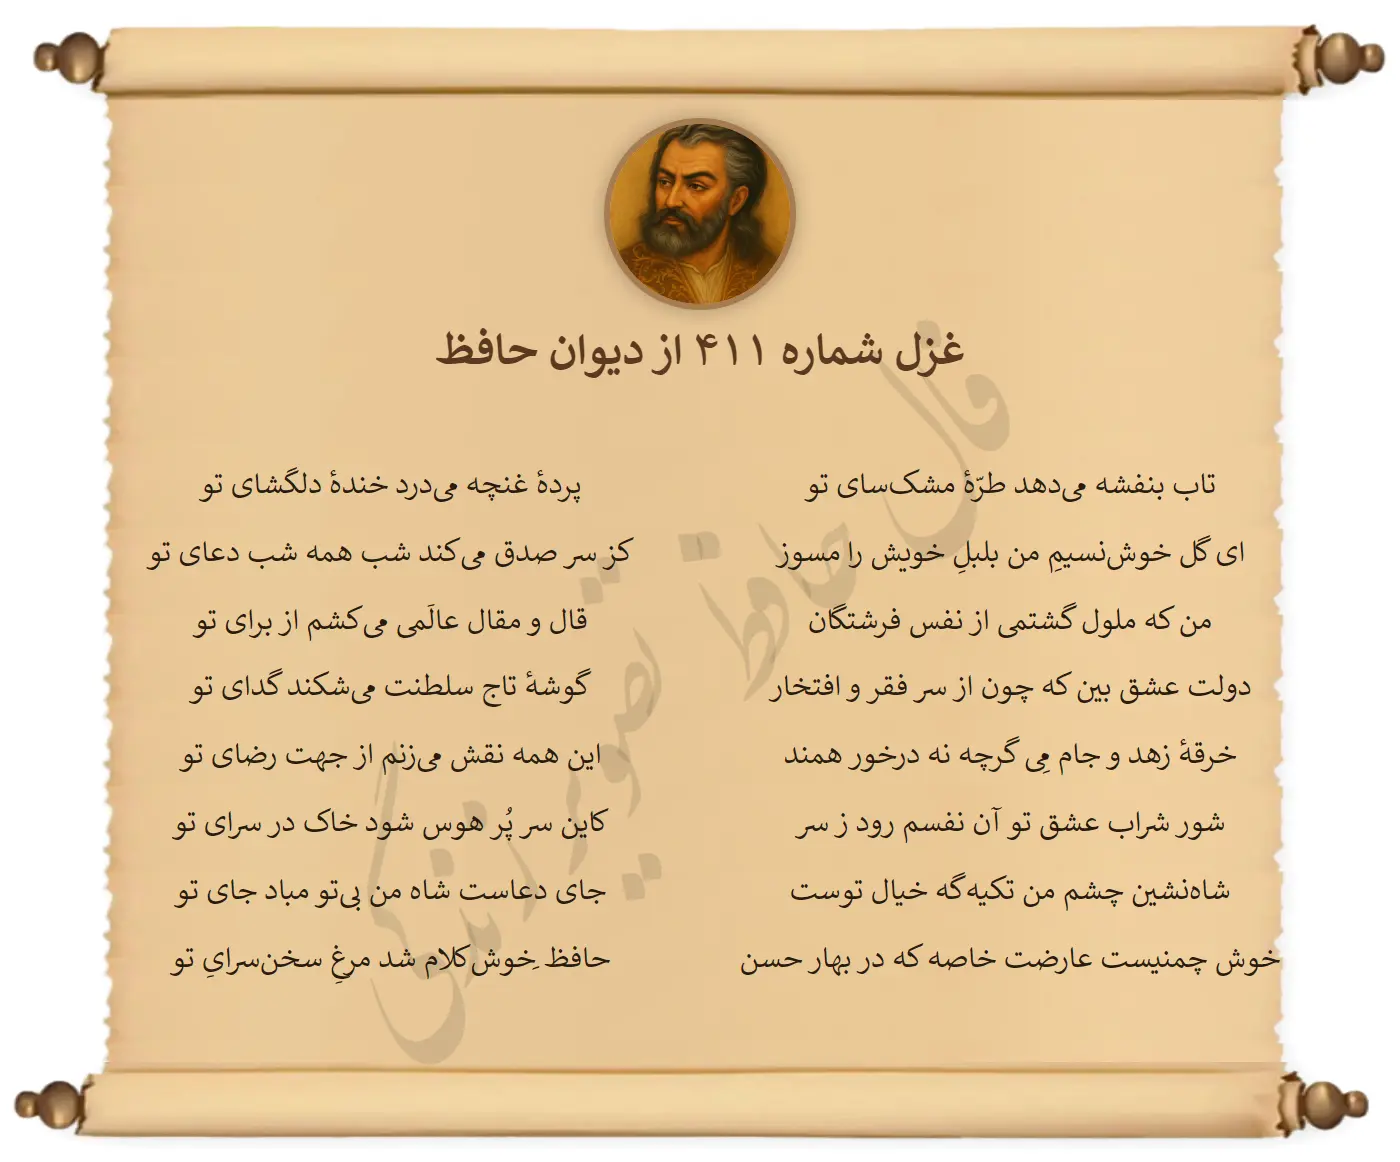 غزل شماره ۴۱۱ از دیوان حافظ
تاب بنفشه می‌دهد طرّهٔ مشک‌سای تو
پردهٔ غنچه می‌درد خندهٔ دلگشای تو
ای گل خوش‌نسیمِ من بلبلِ خویش را مسوز
کز سر صدق می‌کند شب همه شب دعای تو
من که ملول گشتمی از نفس فرشتگان
قال و مقال عالَمی می‌کشم از برای تو
دولت عشق بین که چون از سر فقر و افتخار
گوشهٔ تاج سلطنت می‌شکند گدای تو
خرقهٔ زهد و جام مِی گرچه نه درخور همند
این همه نقش می‌زنم از جهت رضای تو
شور شراب عشق تو آن نفسم رود ز سر
کاین سر پُر هوس شود خاک در سرای تو
شاه‌نشین چشم من تکیه‌گه خیال توست
جای دعاست شاه من بی‌تو مباد جای تو
خوش چمنیست عارضت خاصه که در بهار حسن
حافظ ِخوش‌کلام شد مرغِ سخن‌سرایِ تو
فال حافظ تصویر زندگی